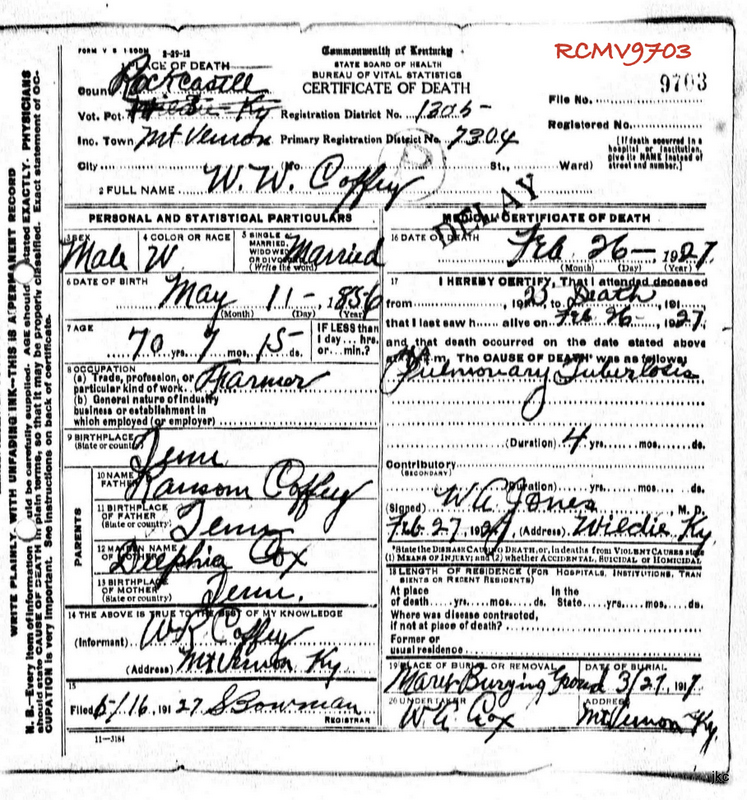 RCMV9703
FORM V S 1-500M 2-29-12
PLACE OF DEATH
Commonwealth of Kentucky
STATE BOARD OF HEALTH
BUREAU OF VITAL STATISTICS
CERTIFICATE OF DEATH
9703
File No.
County Rockcastle
Vot. Pct. Ky Registration District No. 1305
Registered No.
Inc. Town Mt Vernon Primary Registration District No. 7304
(If death occurred in a hospital or institution, give its NAME instead of street and number.)
City (No St., Ward)
2 FULL NAME W. W. Coffey
DELAY
PERSONAL AND STATISTICAL PARTICULARS
3 SEX Male
4 COLOR OR RACE W
5 SINGLE MARRIED, WIDOWED OR DIVORCED (Write the word) Married
6 DATE OF BIRTH May 11 - 1856
(Month) (Day) (Year)
7 AGE 70 yrs. 7 mos. 15 ds.
IF LESS than 1 day... hrs. or... min.?
8 OCCUPATION
(a) Trade, profession, or particular kind of work Farmer
(b) General nature of industry
business or establishment in
which employed (or employer)
9 BIRTHPLACE (State or country) Tenn
PARENTS
10 NAME FATHER Ransom Coffey
11 BIRTHPLACE OF FATHER (State or country) Tenn
12 MAIDEN NAME OF MOTHER Cox
13 BIRTHPLACE OF MOTHER (State or country) Tenn.
14 THE ABOVE IS TRUE TO THE BEST OF MY KNOWLEDGE
(Informant) Coffey
(Address) Mt Vernon Ky
15
Filed 6/16, 1927 S Bowman
REGISTRAR
11-3184
MEDICAL CERTIFICATE OF DEATH
16 DATE OF DEATH Feb 26 - 1927
(Month) (Day) (Year)
17 I HEREBY CERTIFY, That I attended deceased
from , 1923 to Death , 191
that I last saw h alive on Feb 26 - , 1927
and that death occurred on the date stated above
at m. The CAUSE OF DEATH was as follows:
Pulmonary Tuberlosis
(Duration) 4 yrs. mos. ds.
Contributory
(SECONDARY)
(Duration) yrs. mos. ds.
(Signed) W A Jones M. D.
Feb 27, 1927 (Address) Wildie Ky
*State the DISEASE CAUSING DEATH, or, in deaths from VIOLENT CAUSES state
(1) MEANS OF INJURY; and (2) whether ACCIDENTAL, SUICIDAL or HOMICIDAL
18 LENGTH OF RESIDENCE (FOR HOSPITALS, INSTITUTIONS, TRANSIENTS OR RECENT RESIDENTS)
At place of death yrs. mos. ds. In the State yrs. mos. ds.
Where was disease contracted,
if not at place of death?
Former or
usual residence
19 PLACE OF BURIAL OR REMOVAL DATE OF BURIAL
Burying Ground 3/27, 1917
20 UNDERTAKER ADDRESS
Cox Mt Vernon Ky.
WRITE PLAINLY, WITH UNFADING INK—THIS IS A PERMANENT RECORD
N. B.—Every item of information should be carefully supplied. AGE should be stated EXACTLY. PHYSICIANS
should state CAUSE OF DEATH in plain terms, so that it may be properly classified. Exact statement of OC-
CUPATION is very important. See instructions on back of certificate.
jkc